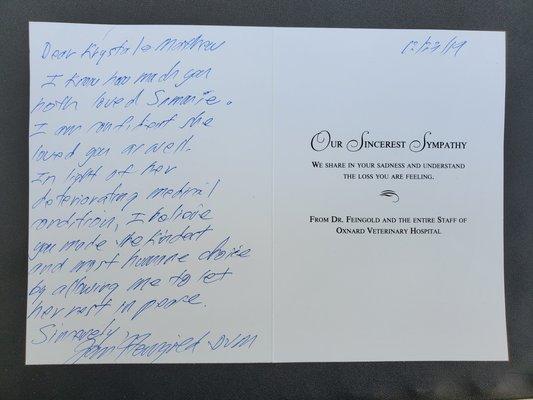 Dear Krystal & Matthew
I know how much you
both loved Simonie.
I am confident she
loved you as well.
In light of her
deteriorating medical
condition, I believe
you made the kindest
and most humane choice
by allowing me to let
her rest in peace.
Sincerely
Feingold DVM
12/23/19
Our Sincerest Sympathy
We share in your sadness and understand
the loss you are feeling.
From Dr. Feingold and the entire Staff of
Oxnard Veterinary Hospital